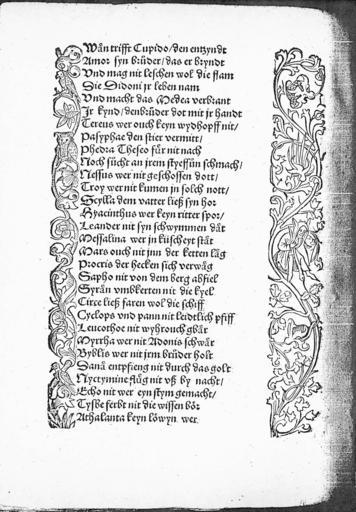 Wan trifft Cupido/den entzyndt
Amor syn brůder/das er bryndt
Vnd mag nit leschen wol die flam
Die Didoni jr leben nam
Vnd macht das Medea verbrant
Jr kynd/den brůder dot mit jr handt
Tereus wer ouch keyn wydhopff nit/
Pasyphae den stier vermitt/
Phedra Theseo für nit nach
Noch sůcht an jrem styeffsůn schmach/
Nessus wer nit geschossen dott/
Troy wer nit kumen jn solch nott/
Scylla dem vatter ließ syn hor
Hyacinthus wer keyn ritter spor/
Leander nit syn schwymmen dät
Messalina wer jn küscheyt stät
Mars ouch nit jnn der ketten läg
Procris der hecken sich verwäg
Sapho nit von dem berg abfiel
Syrän vmbkerten nit die kyel
Circe ließ faren wol die schiff
Cyclops vnd pann nit leidtlich pfiff
Leucothoe nit wyhrouch gbär
Myrrha wer nit Adonis schwär
Byblis wer nit jrm brůder holt
Danä entpfieng nit durch das golt
Nyctymine flüg nit vß by nacht/
Echo nit wer eyn stym gemacht/
Tysbe ferbt nit die wissen bör
Athalanta keyn löwyn wer